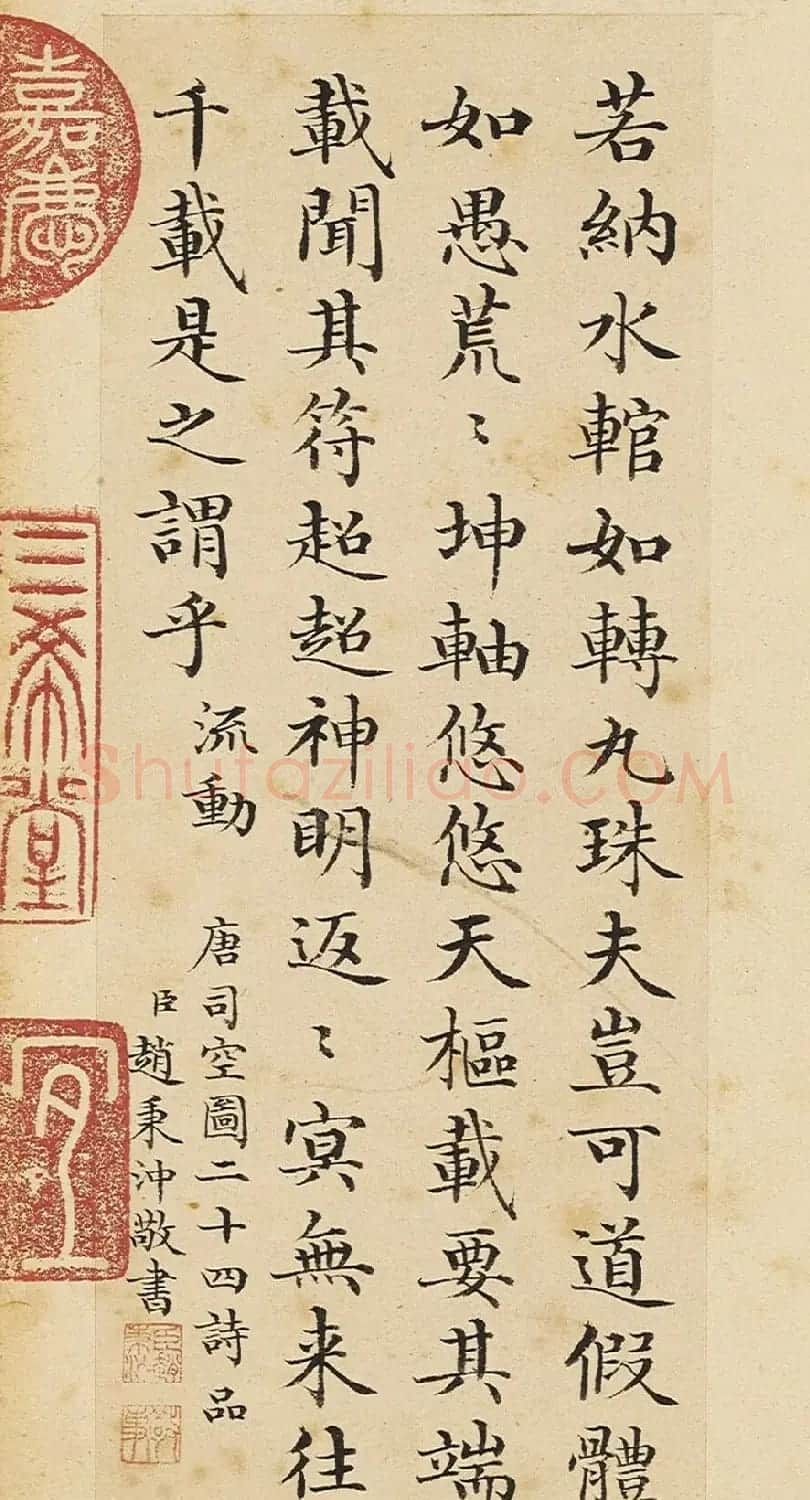 若納水輨如轉丸珠夫豈可道假體
如愚荒〻坤軸悠悠天樞載要其端
載聞其符超超神明返〻㝠無来往
千載是之謂乎 流動
唐司空圖二十四詩品
臣趙秉沖敬書
嘉慶
三希堂
宜
Shufaziliao.COM